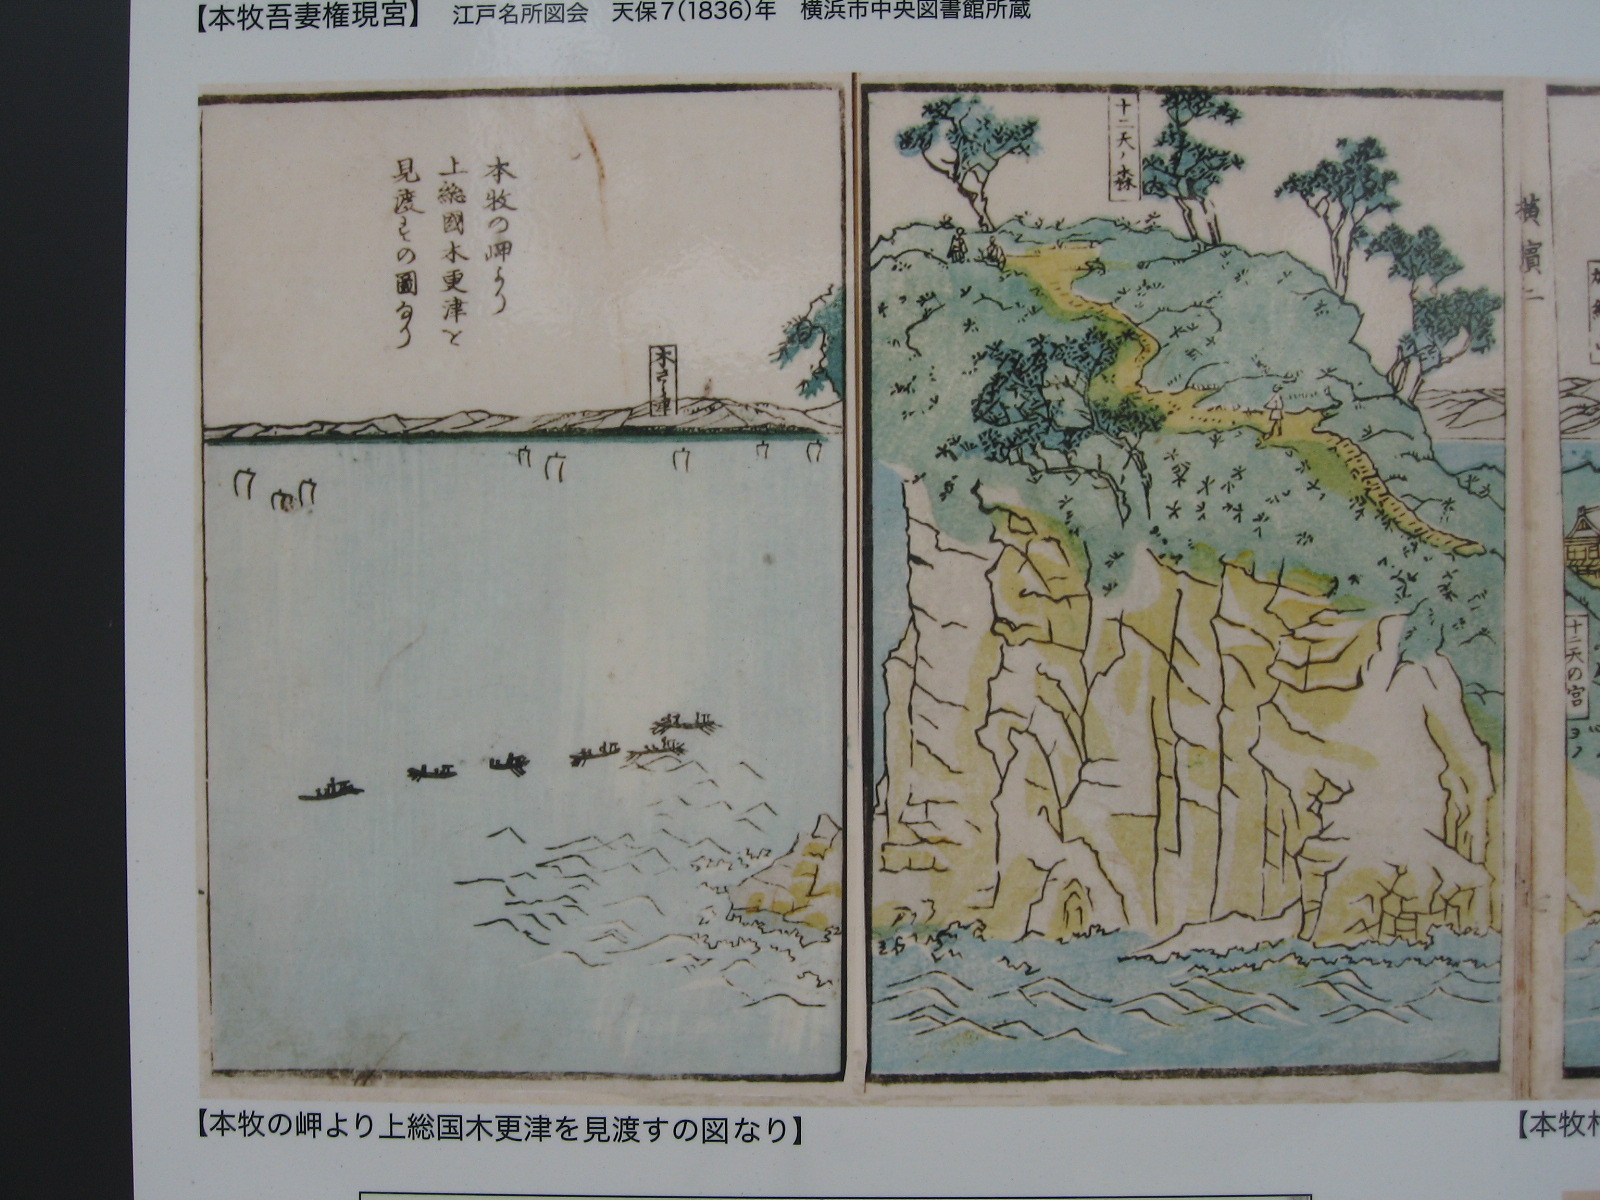 【本牧吾妻権現宮】 江戸名所図会 天保7(1836)年 横浜市中央図書館所蔵
本牧の岬より
上総國木更津を
見渡すの圖なり
木さらず
十二天ノ森
横濱二
十二天の宮
【本牧の岬より上総国木更津を見渡すの図なり】
【本牧